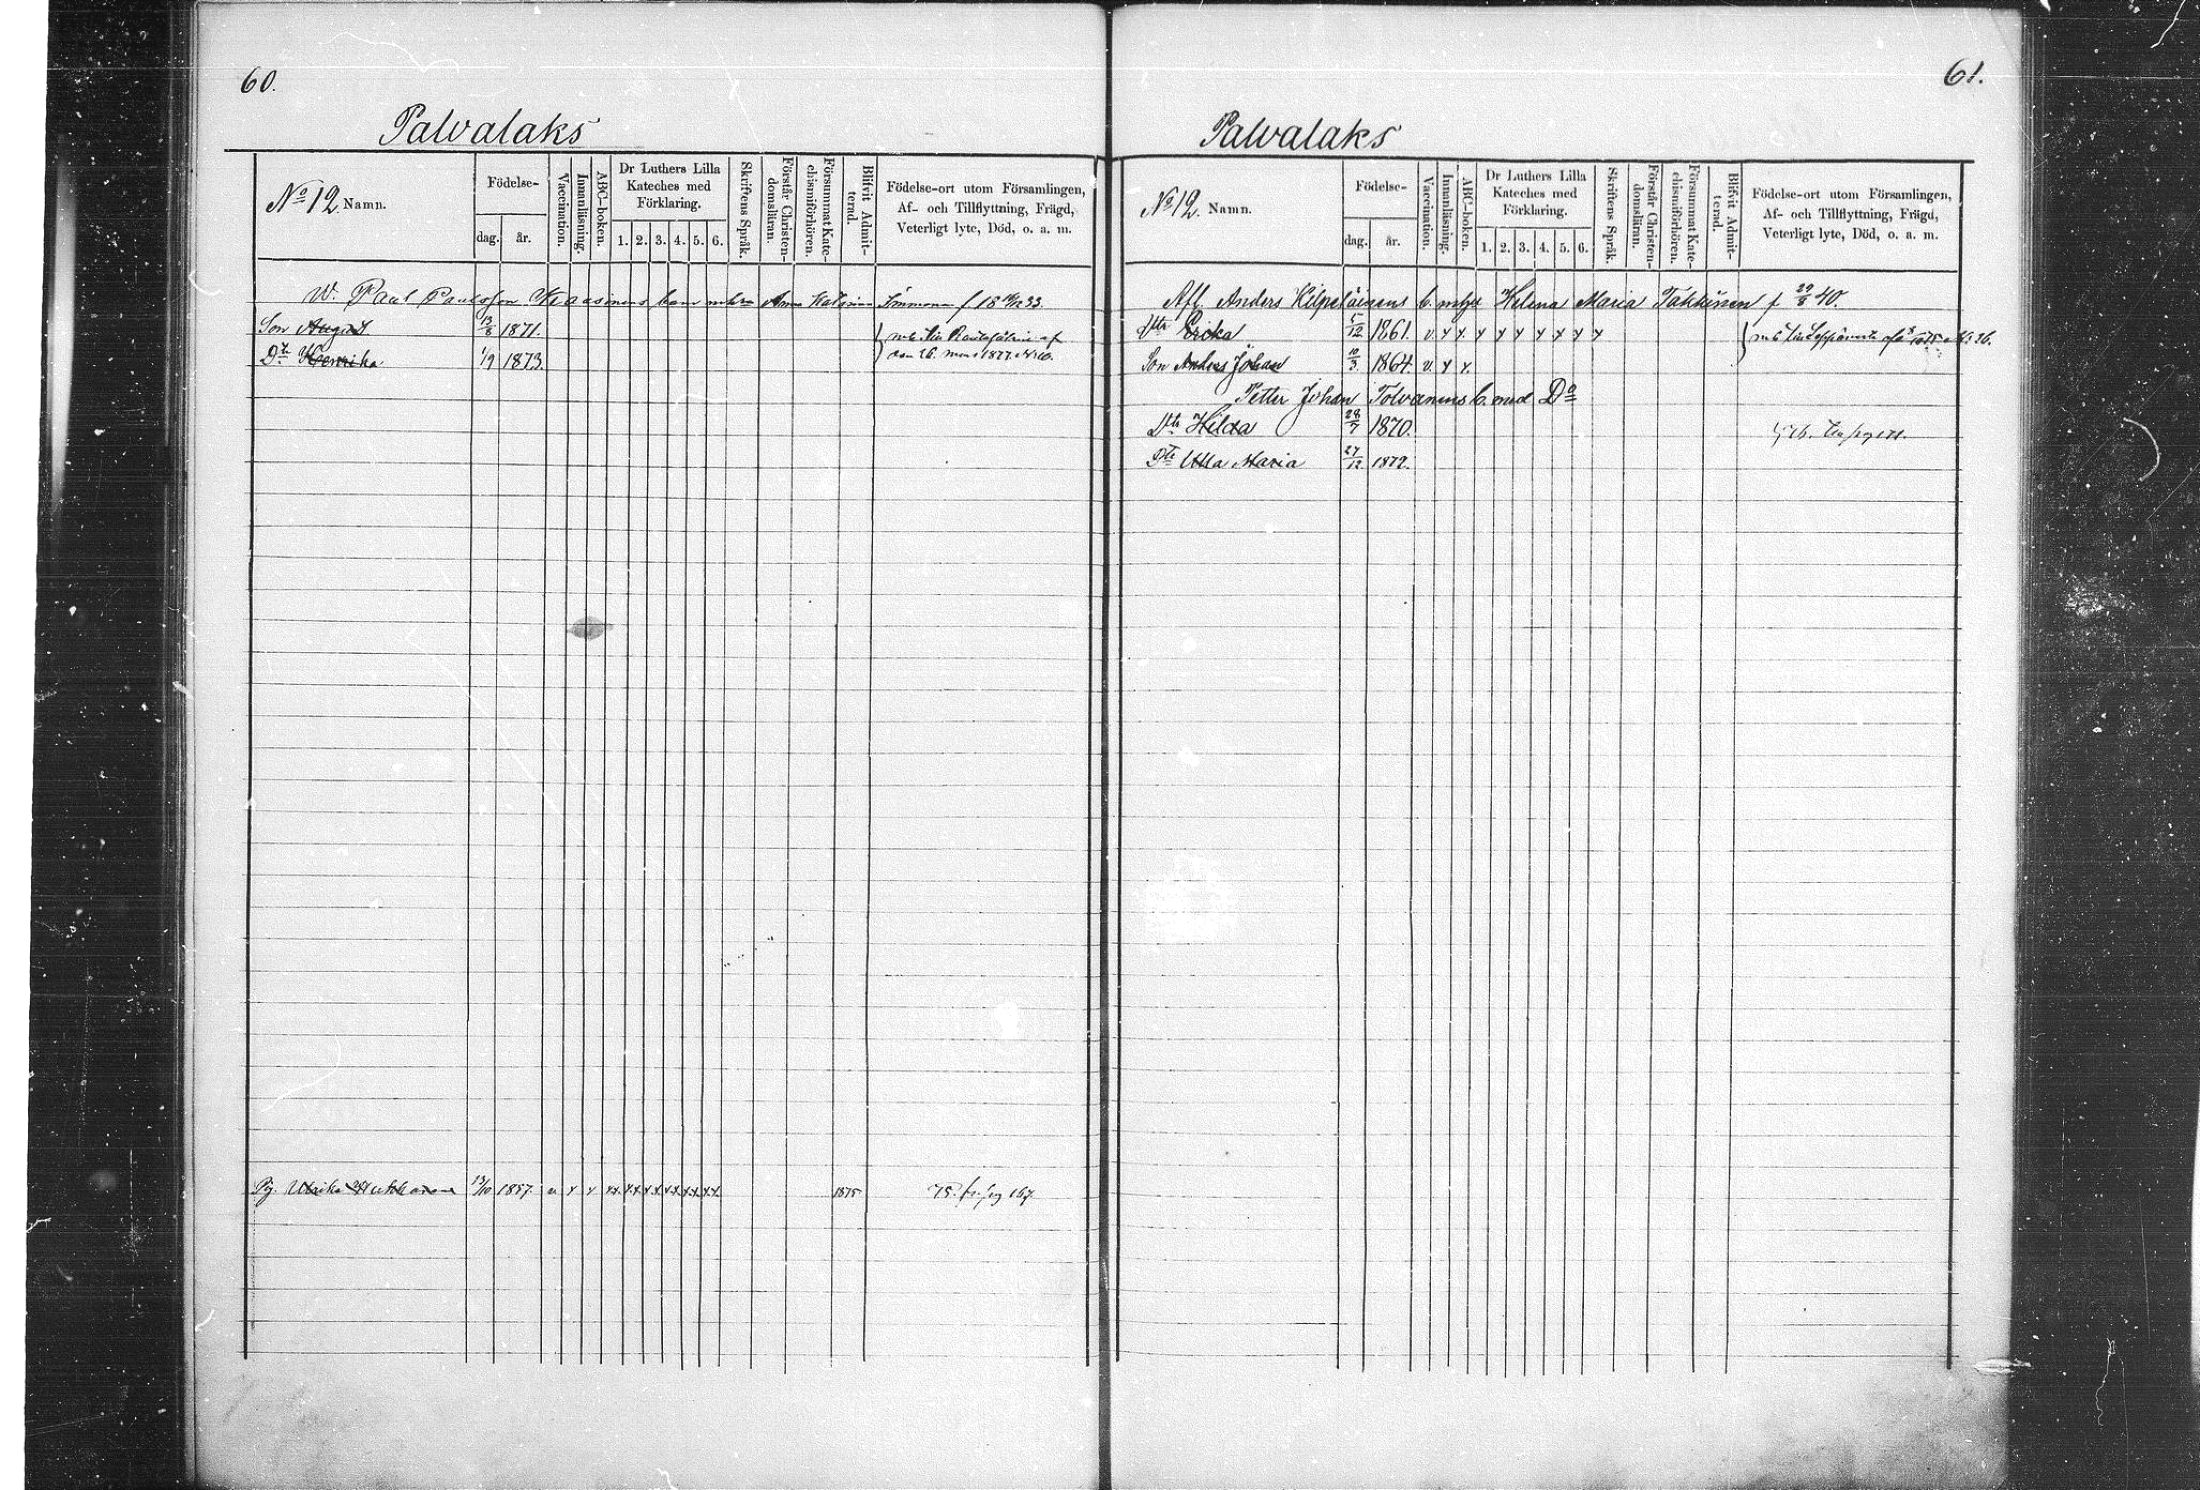 60.
Palvalaks
No 12. Namn.
Födelse-
dag. år.
Vaccination.
Innanläsning.
ABC-boken.
Dr Luthers Lilla
Kateches med
Förklaring.
1. 2. 3. 4. 5. 6.
Skriftens Språk.
Förstår Christen-
domsläran.
Försummat Kate-
chismiförhören.
Blifvit Admit-
terad.
Födelse-ort utom Församlingen,
Af- och Tillflyttning, Frägd,
Veterligt lyte, Död, o. a. m.
W. Paul Paulsson barn m hu Anna Katarina f 18 33.
Son August 13/8 1871.
Dtr Henrika 1/9 1873.
1877 No 60.
Pig. Ulrika 13/10 1857. v x x xx xx xx xx xx xx 1875 75. fr. pag 167
61.
Palvalaks
No 12. Namn.
Födelse-
dag. år.
Vaccination.
Innanläsning.
ABC-boken.
Dr Luthers Lilla
Kateches med
Förklaring.
1. 2. 3. 4. 5. 6.
Skriftens Språk.
Förstår Christen-
domsläran.
Försummat Kate-
chismiförhören.
Blifvit Admit-
terad.
Födelse-ort utom Församlingen,
Af- och Tillflyttning, Frägd,
Veterligt lyte, Död, o. a. m.
Afl. Anders Kilpeläinens b. m hu Helena Maria Takkinen f 29/8 40.
Dtr Ericka 5/12 1861. v. x x. x x x x x x x
Son Anders Johan 10/3 1864. v. x x.
Petter Johan Tolvanens b. med Do
Dtr Hilda 28/7 1870.
Dtr Ulla Maria 27/12 1872.